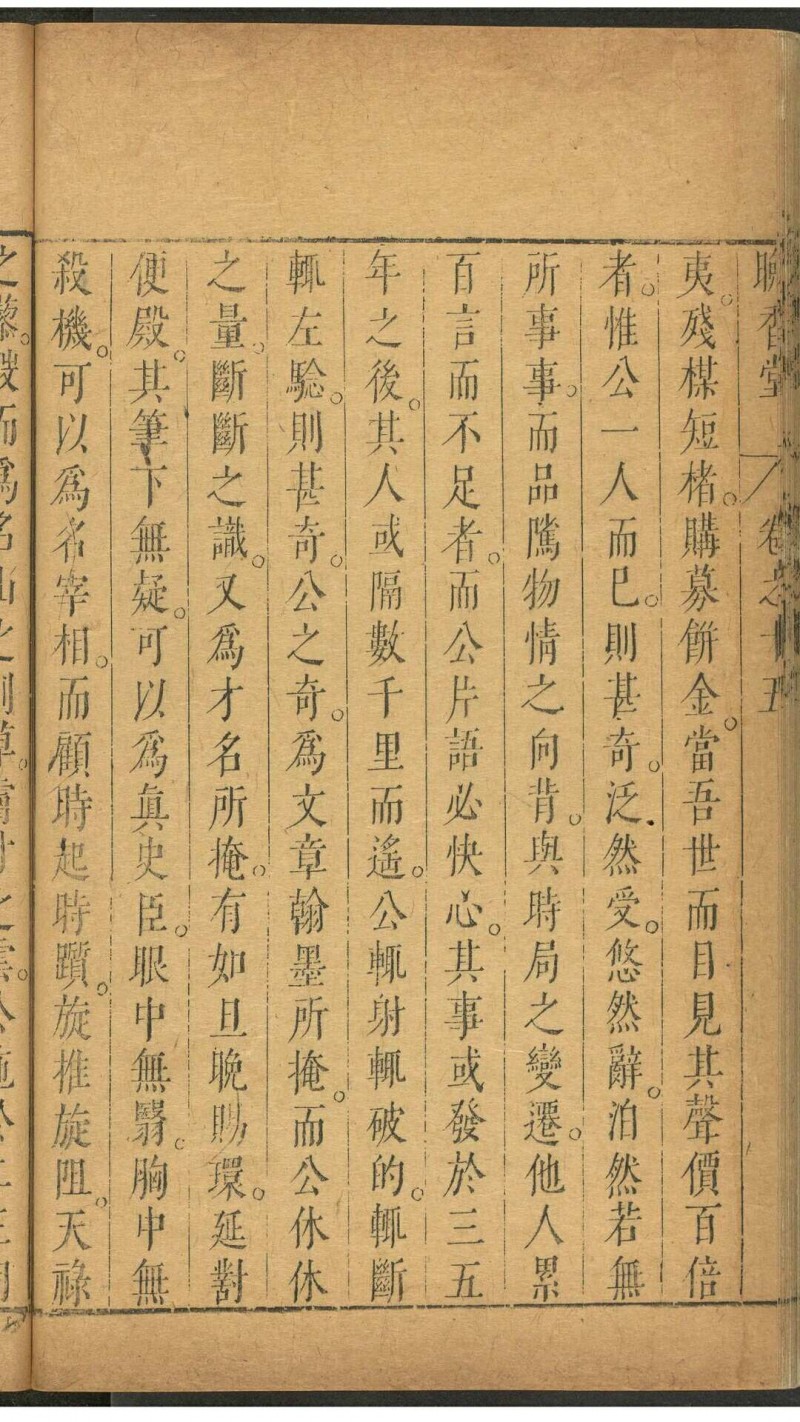 晚香堂 卷之十五
夷。殘楳短楮。購募餅金。當吾世而目見其聲價百倍
者。惟公一人而已。則甚奇。泛然受。悠然辭。泊然若無
所事事。而品隲物情之向背。與時局之變遷。他人累
百言而不足者。而公片語必快心。其事或發於三五
年之後。其人或隔數千里而遙。公輒射輒破的。輒斷
輒左驗。則甚奇。公之奇。爲文章翰墨所掩。而公休休
之量。斷斷之識。又爲才名所掩。有如旦晚賜環。延對
便殿。其筆下無疑。可以爲眞史臣。眼中無翳。胸中無
殺機。可以爲名宰相。而顧時起時躓。旋推旋阻。天祿